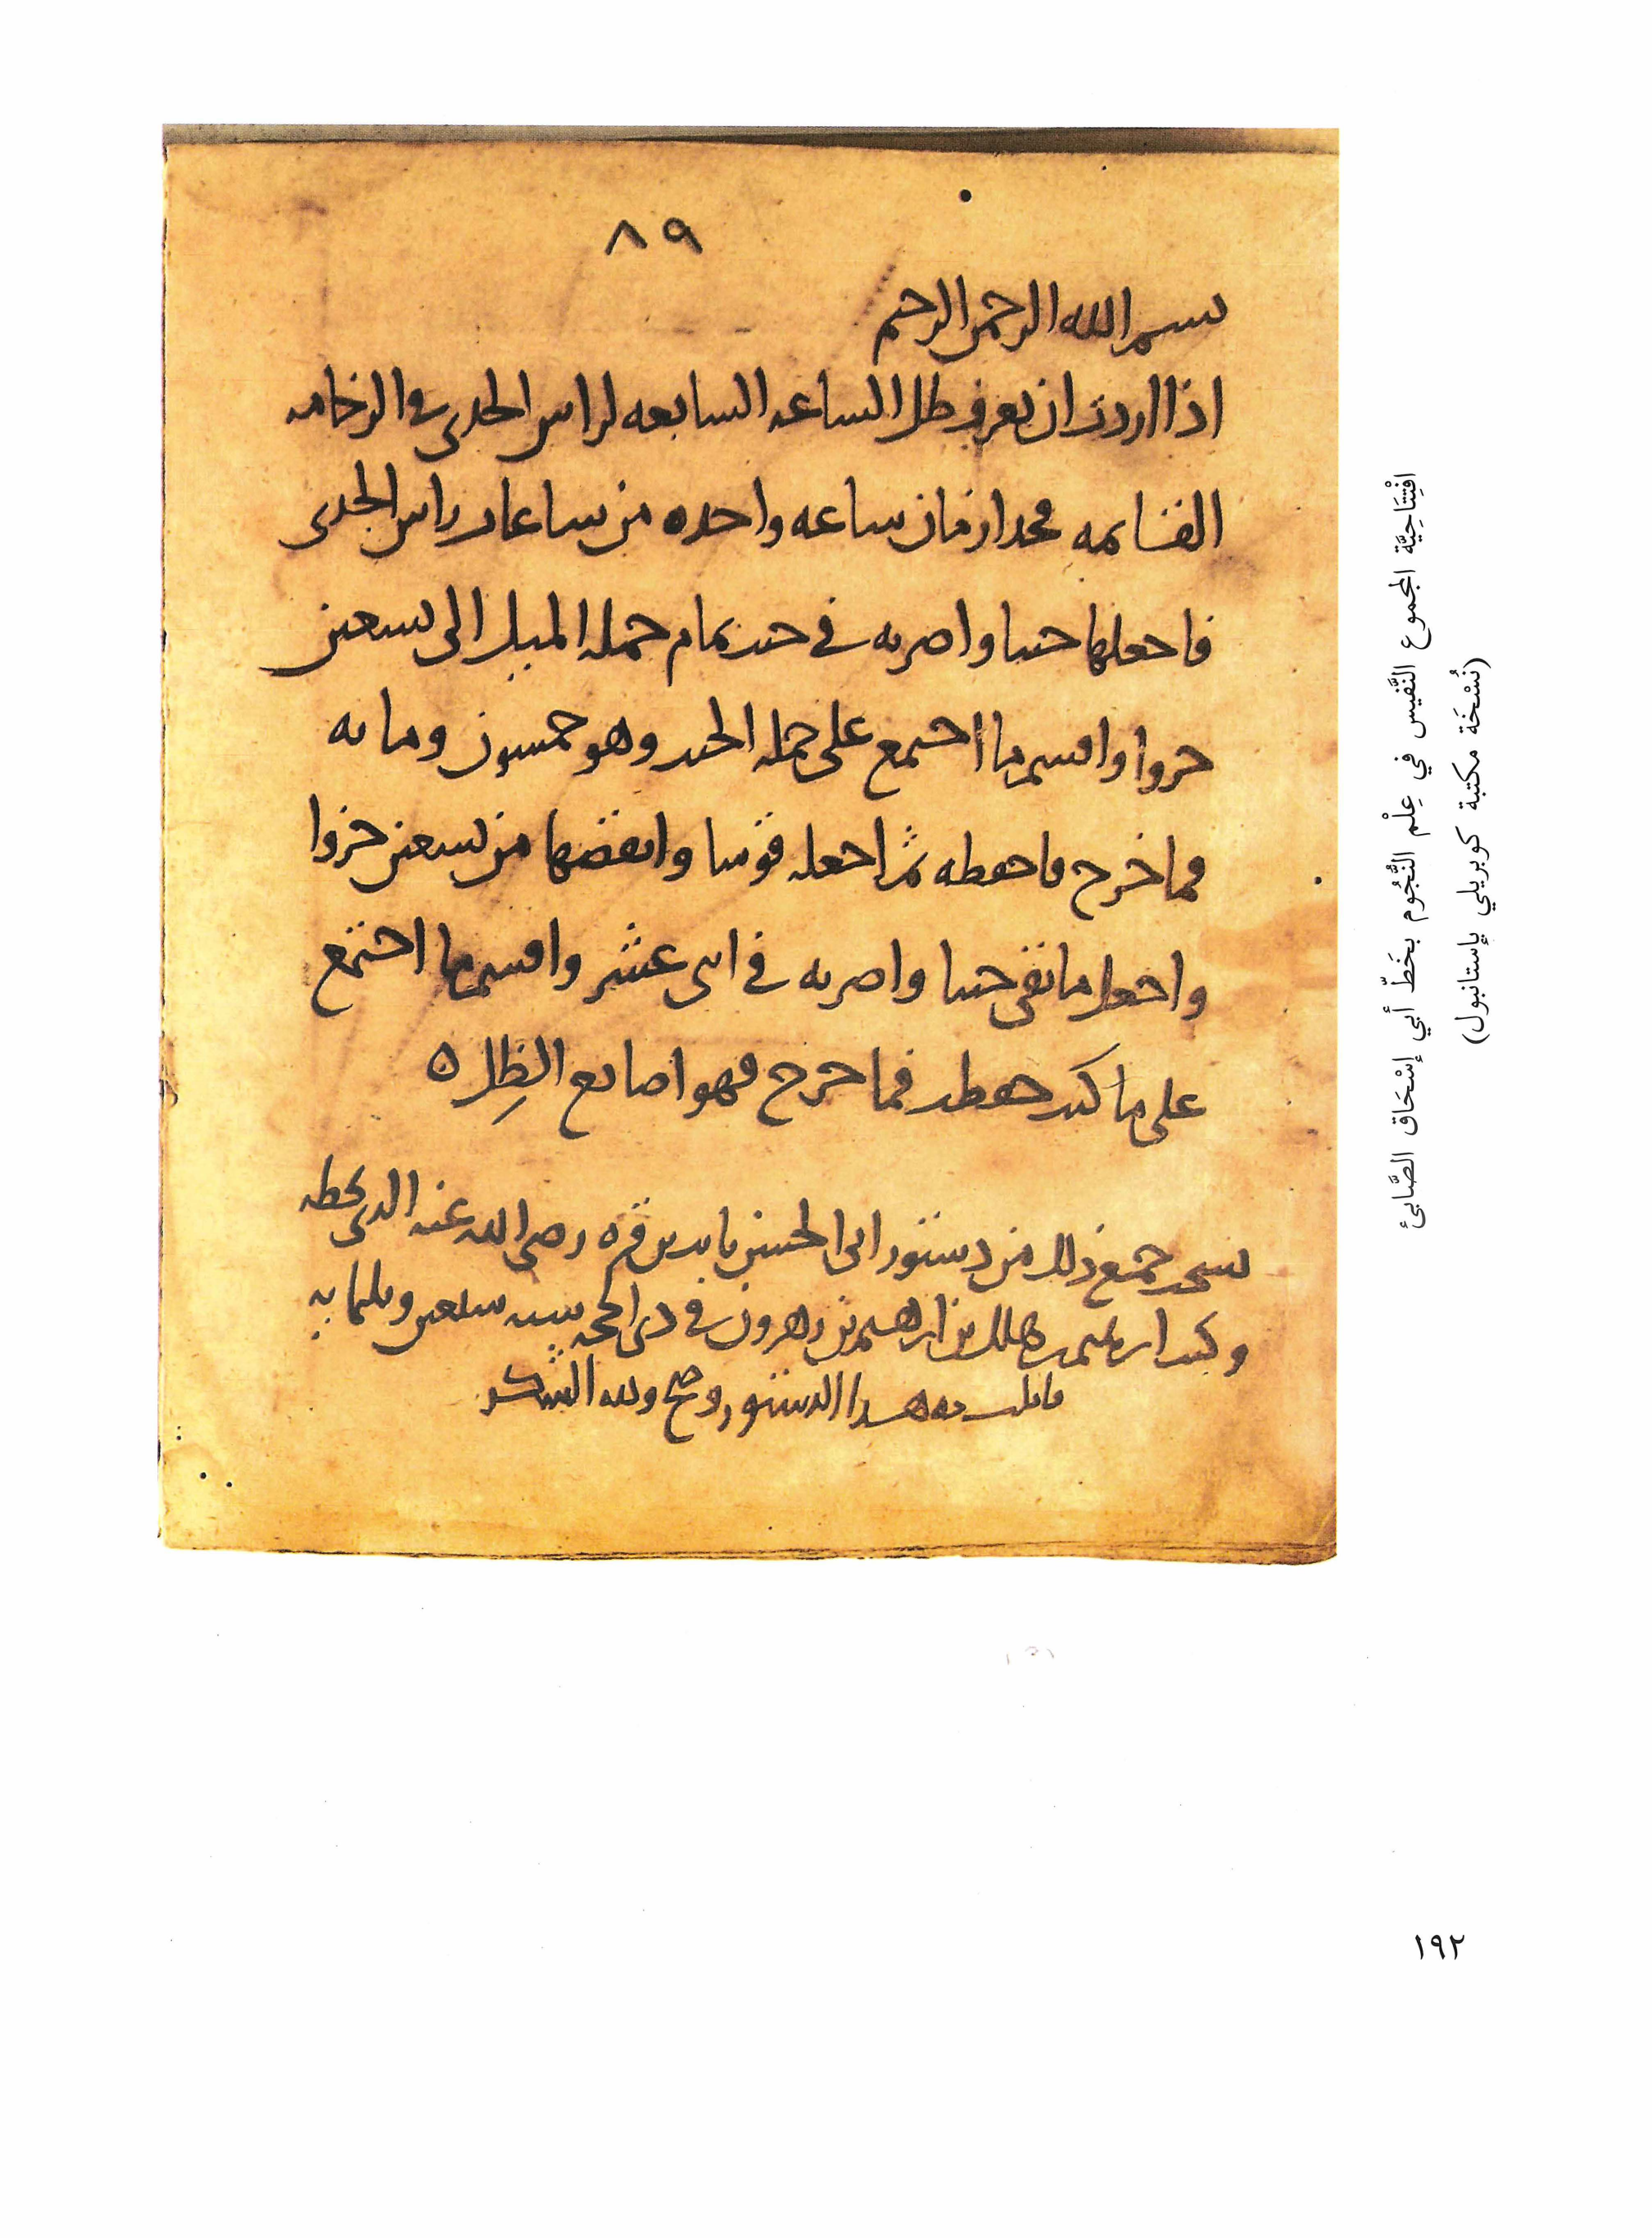 ٨٩
بسم الله الرحمن الرحيم
اذا اردت ان تعرف ظل الساعه السابعه لراس الجدى فى الرخامه
القائمه فخذ ازمان ساعه واحده من ساعات راس الجدى
فاجعلها جيبا واضربه في جيب تمام جمله الميل الى تسعين
جزوا واقسم ما اجتمع على جمله الجيب وهو خمسون ومايه
فما خرج فاحفظه ثم اجعله قوسا وانقصها من تسعين جزوا
واجعل ما بقى جيبا واضربه في اثنى عشر واقسم ما اجتمع
على ما كنت حفظت فما خرج فهو اصابع الظل ه
نسخت جميع ذلك من دستور ابى الحسن ثابت بن قره رضى الله عنه الذى بخطه
وكتب ابرهيم بن هلال بن ابرهيم بن زهرون فى ذى الحجه سنه سبعين وثلثمايه
قابلت به هذا الدستور وصح ولله الشكر
افْتِتَاحِيَّة المجموع النَّفيس في عِلْم النُّجُوم بخَطّ أبي إسْحَاق الصَّابئ
(نُسْخَة مكتبة كوبريلي بإستانبول)
١٩٢